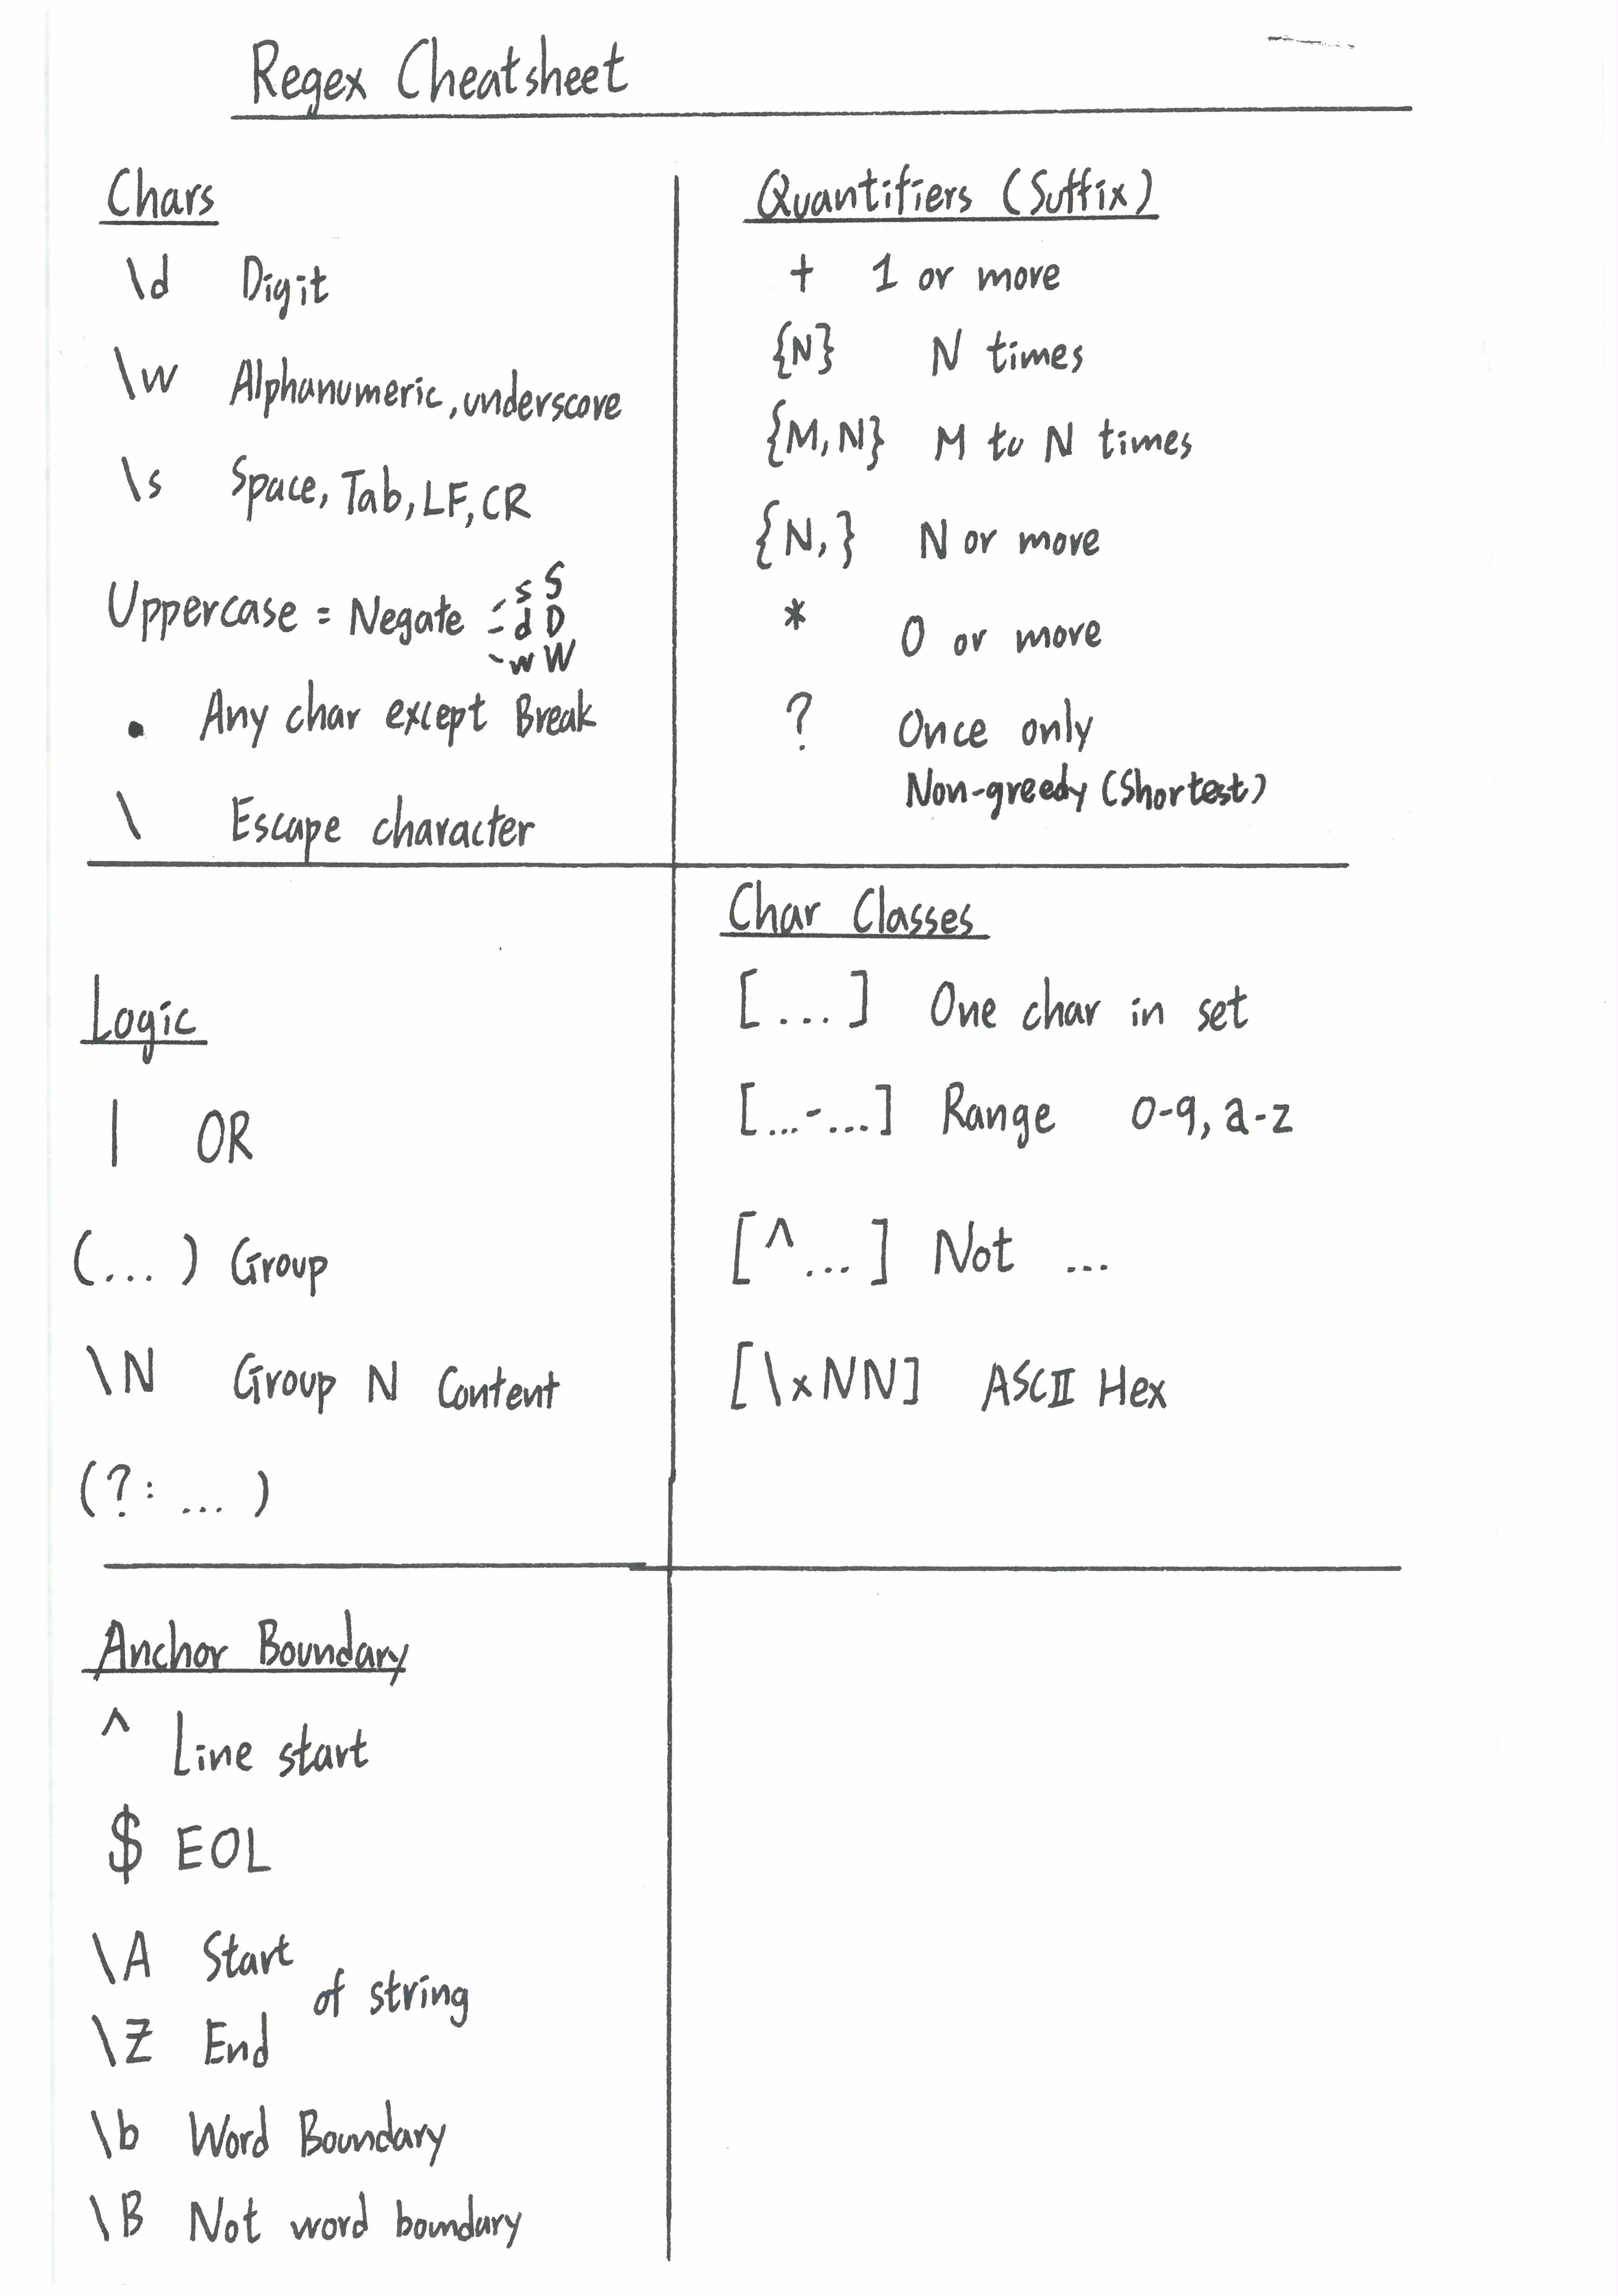 Regex Cheatsheet
Chars
\d Digit
\w Alphanumeric, underscore
\s Space, Tab, LF, CR
Uppercase = Negate
s S
d D
w W
. Any char except Break
\ Escape character
Quantifiers (Suffix)
+ 1 or more
{N} N times
{M,N} M to N times
{N,} N or more
* 0 or more
? Once only
Non-greedy (Shortest)
Logic
| OR
(...) Group
\N Group N Content
(?: ... )
Char Classes
[...] One char in set
[...-...] Range 0-9, a-z
[^...] Not ...
[\xNN] ASCII Hex
Anchor Boundary
^ Line start
$ EOL
\A Start
of string
\Z End
\b Word Boundary
\B Not word boundary